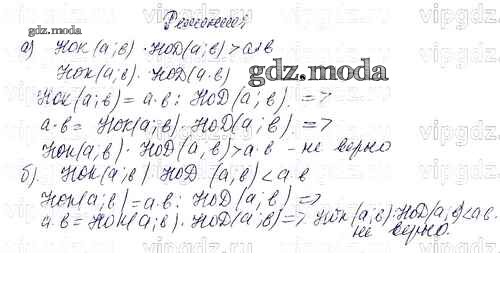 Решение
а) НОК (а; в) · НОД(а; в) > а·в
НОК(а; в) · НОД(а·в)
gdz.moda
НОК(а; в) = а·в : НОД(а; в). =>
а·в = НОК(а; в) · НОД(а; в). =>
НОК(а; в) · НОД(а; в) > а·в - не верно
б). НОК(а; в) · НОД (а; в) < а·в
НОК(а; в) = а·в : НОД(а; в) =>
а·в = НОК(а; в) · НОД(а; в) => НОК(а; в) · НОД(а; в) < а·в.
не верно.
gdz.moda
vipgdz.ru